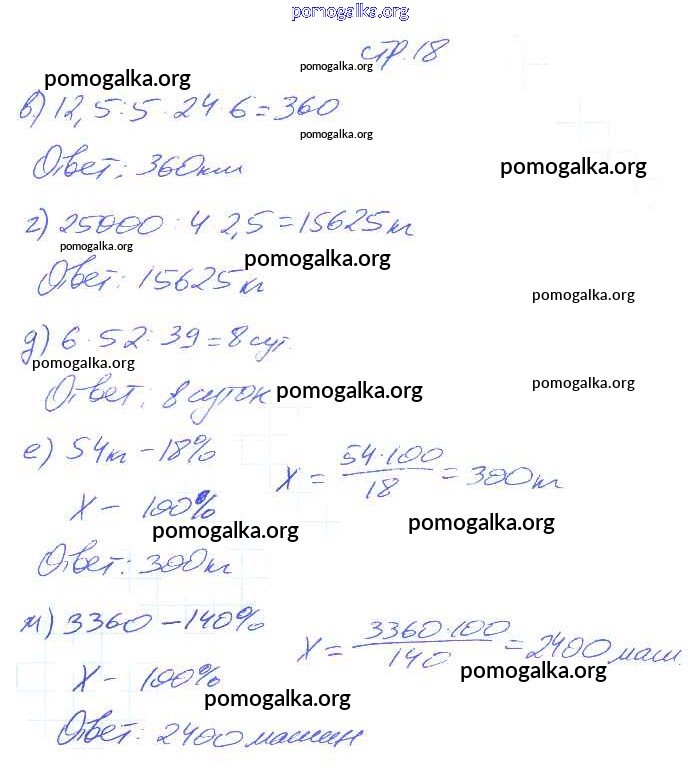 pomogalka.org
стр. 18
pomogalka.org
pomogalka.org
в) 12,5 : 5 · 24 · 6 = 360
pomogalka.org
Ответ: 360 км
pomogalka.org
г) 25000 : 4 · 2,5 = 15625 кг
pomogalka.org
pomogalka.org
Ответ: 15625 кг
pomogalka.org
д) 6 · 52 : 39 = 8 сут.
pomogalka.org
pomogalka.org
Ответ: 8 суток
pomogalka.org
е) 54 кг – 18%
X = 54·100 / 18 = 300 кг
X – 100%
pomogalka.org
pomogalka.org
Ответ: 300 кг
м) 3360 – 140%
X = 3360·100 / 140 = 2400 маш.
X – 100%
pomogalka.org
pomogalka.org
Ответ: 2400 машин